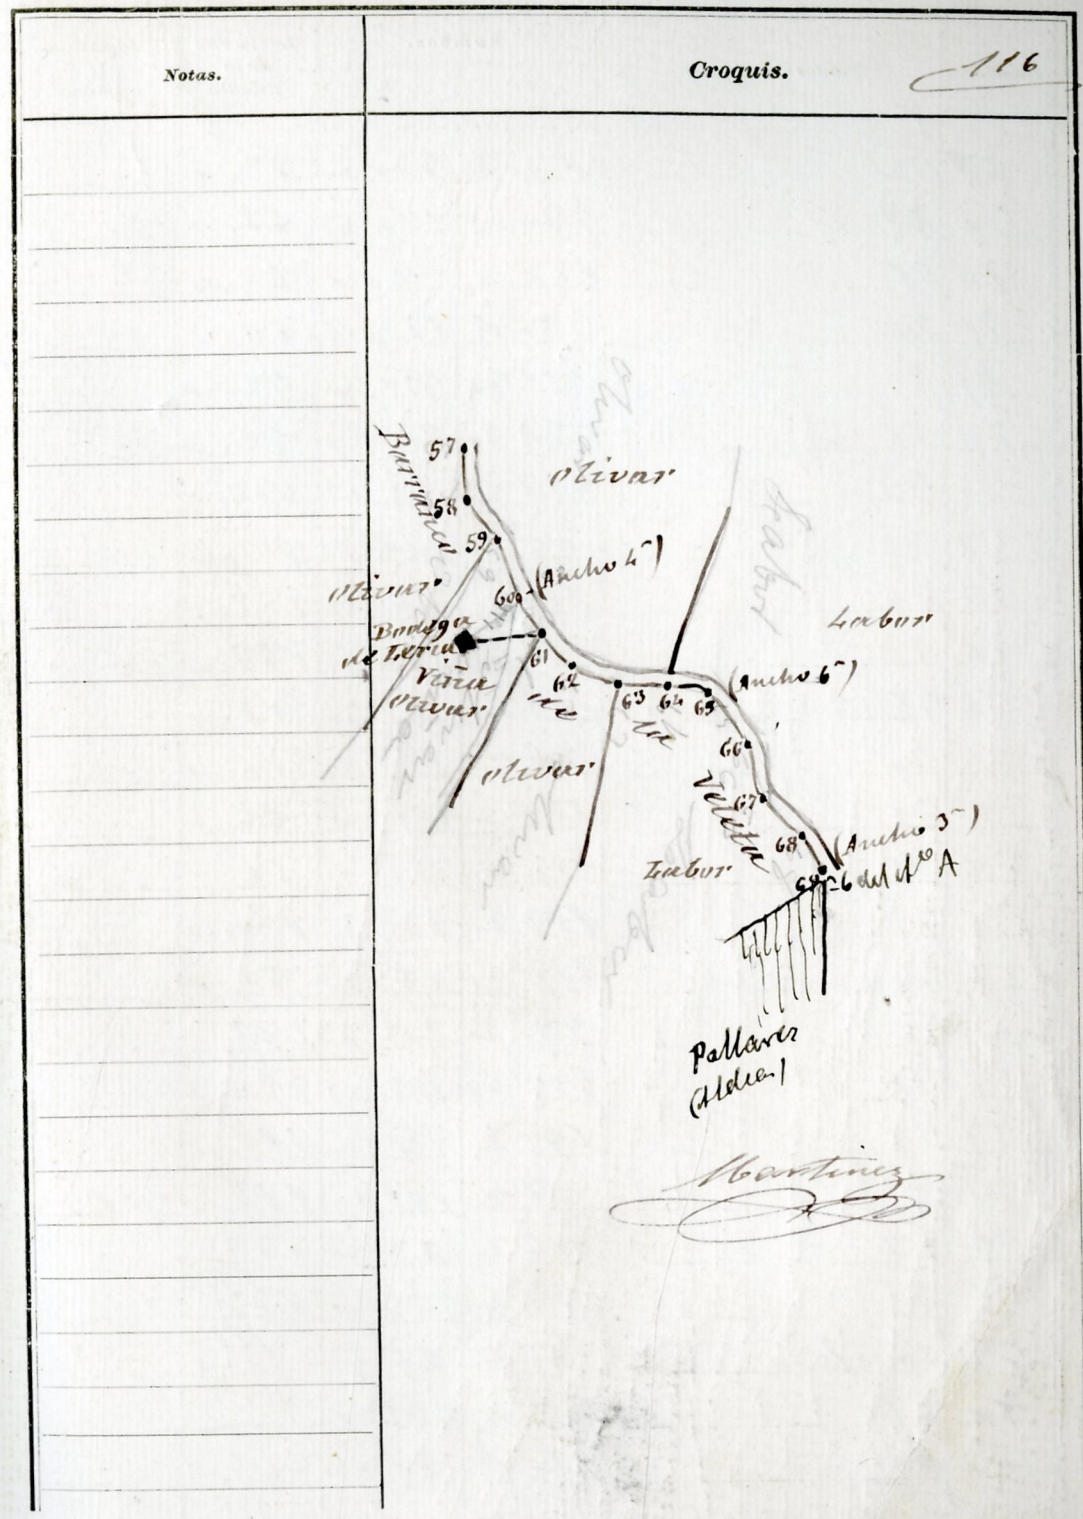 Notas.
Croquis.
116
Barranco
57
58
59
olivar
olivar
60
(Ancho 4m)
Labor
Bodega
de
61
viña
olivar
62
de
63
64
65
(Ancho 6m)
la
66
olivar
Veleta
67
68
(Ancho 3m)
Labor
69 = 6 del itº A
Pallarés
(Aldea)
Martinez